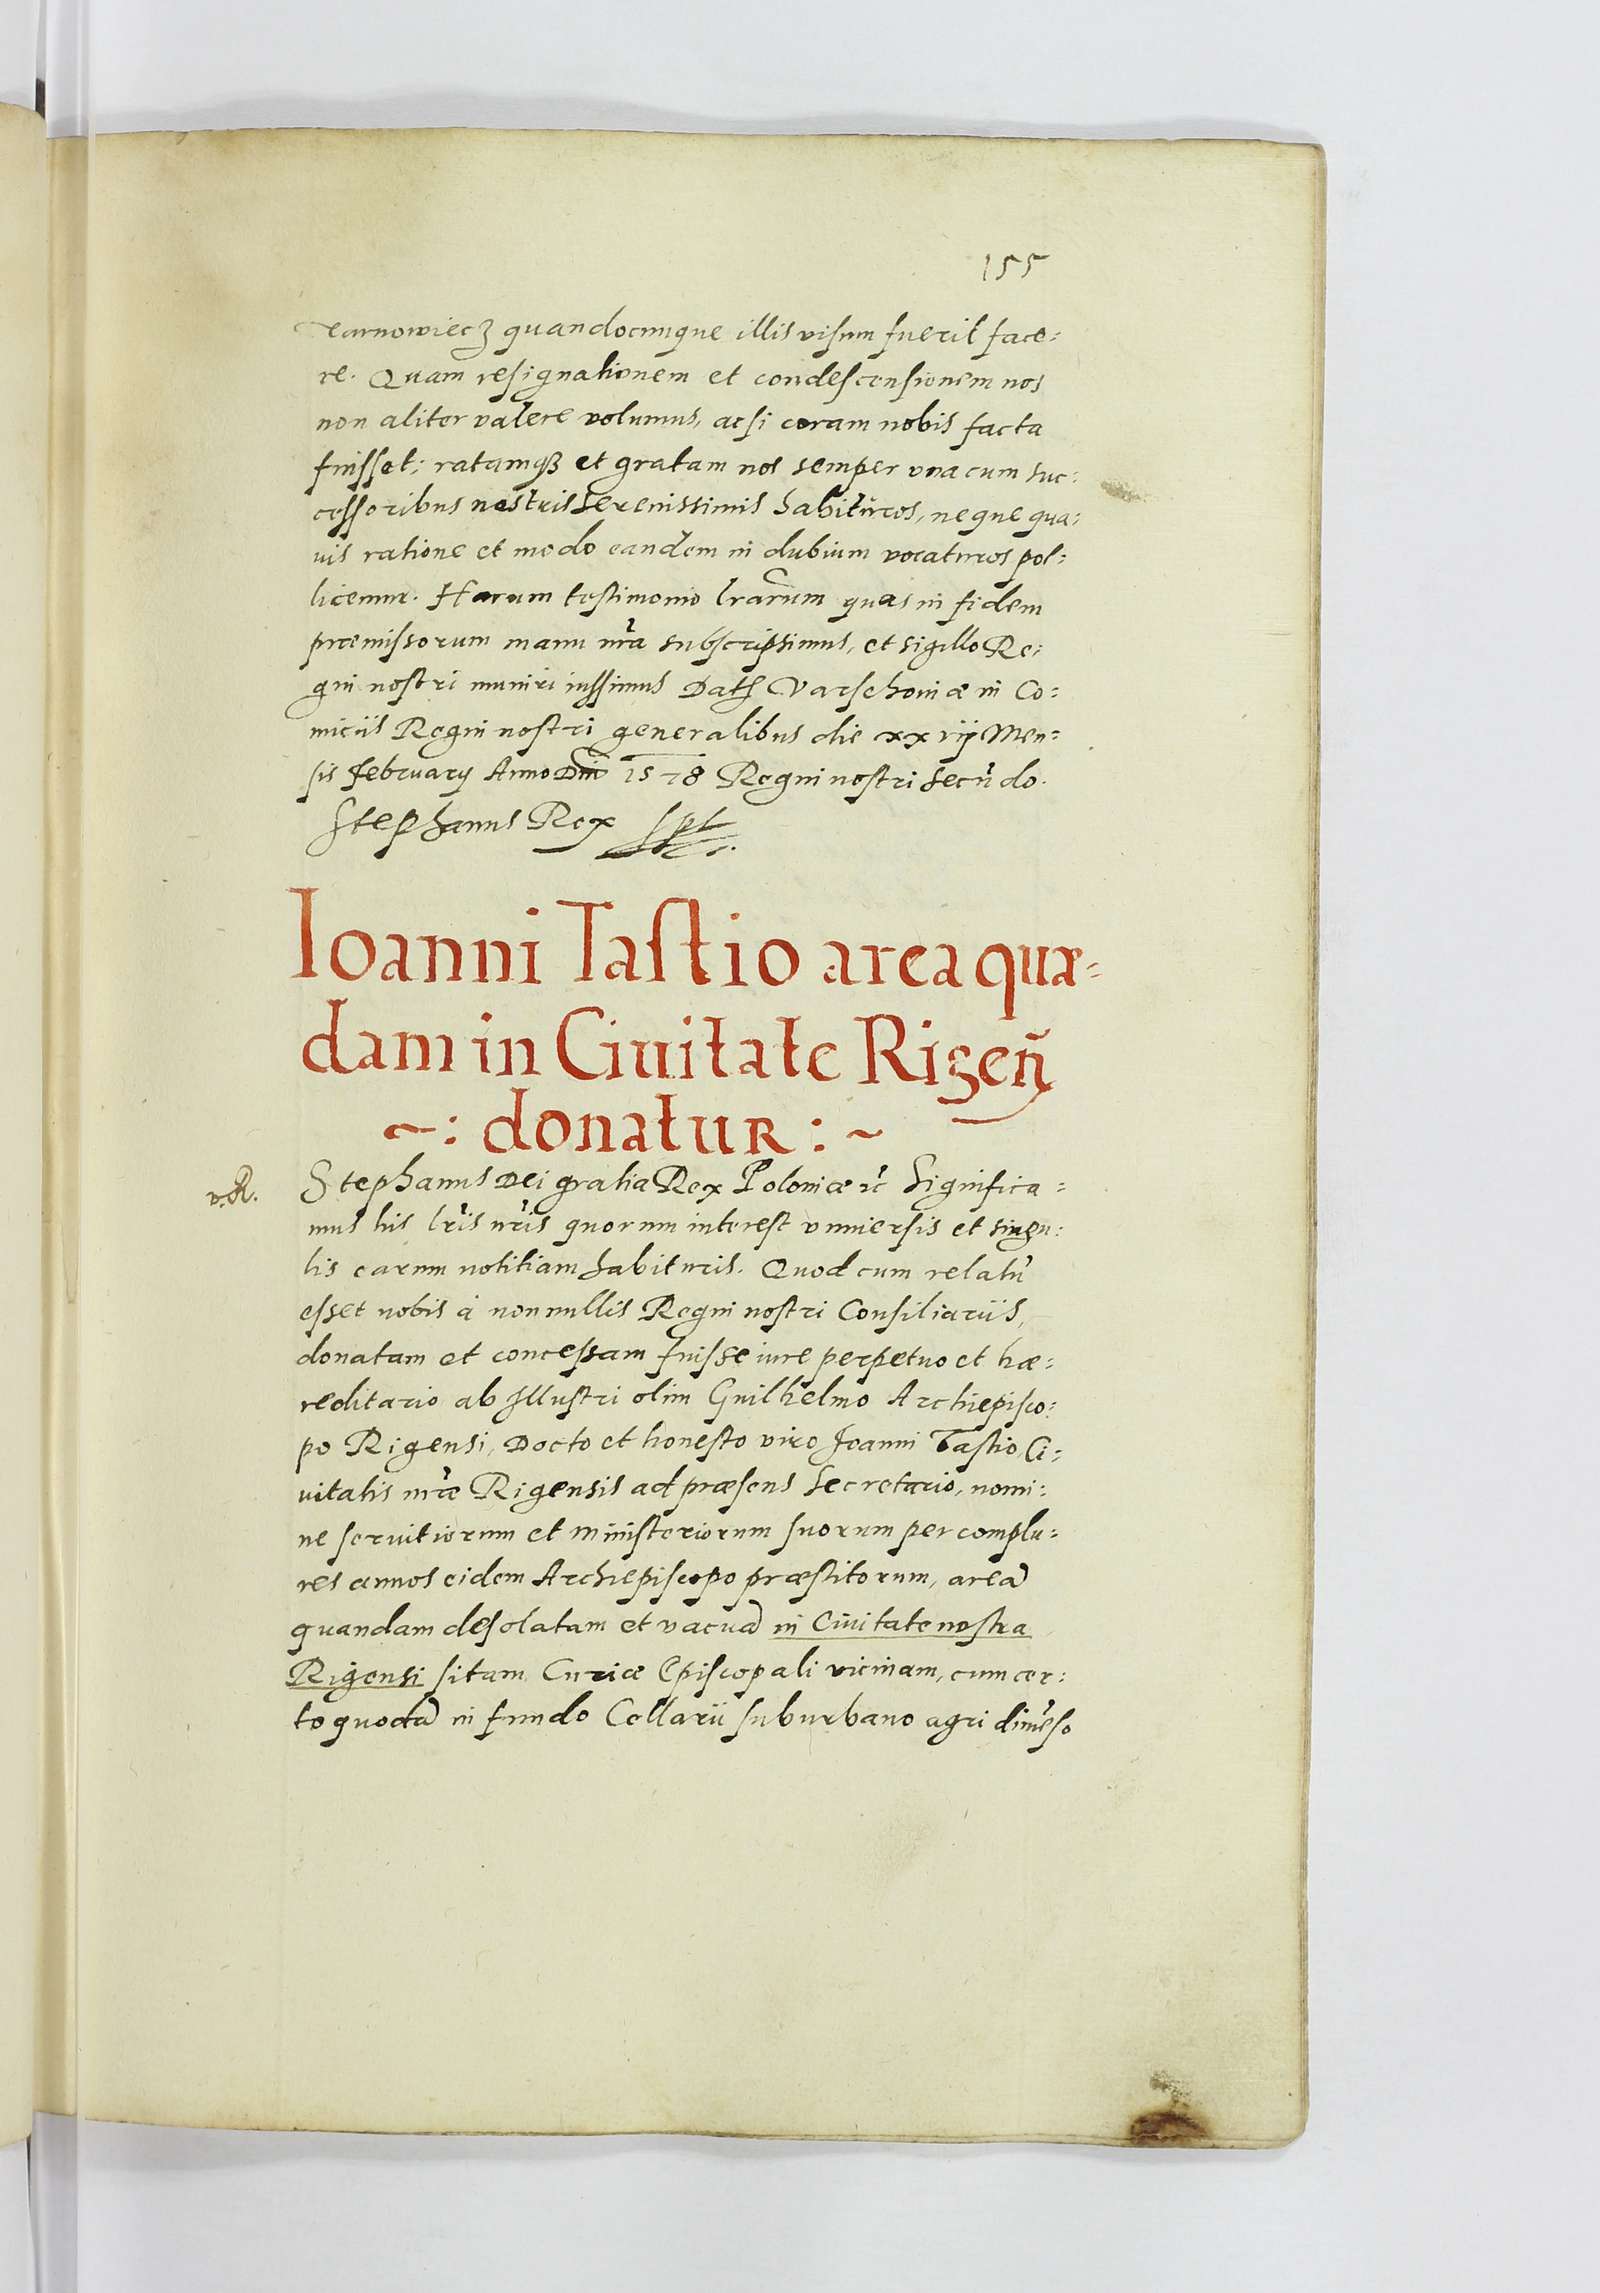 155
Czarnowiecz quandocunque illis visum fuerit face-
re. Quam resignationem et condescensionem nos
non aliter valere volumus, ac si coram nobis facta
fuisset; ratamqз et gratam nos semper vna cum suc-
cessoribus nostris Serenissimis habituros, neque qua-
uis ratione et modo eandem in dubium vocaturos pol-
licemur. Harum testimonio lrarum quas in fidem
præmissorum manu nra subscripsimus, et sigillo Re-
gni nostri muniri iussimus Dat Varschouiæ in Co-
miciis Regni nostri generalibus die xxvij Men-
sis february Anno Dni 1578 Regni nostri Secūdo.
Stephanus Rex spt
Ioanni Tastio area quæ-
dam in Ciuitate Rigeñ
~: donatur :~
v. R.
Stephanus Dei gratia Rex Poloniæ ꝛc Significa-
mus his lris nris quorum interest vniuersis et singu-
lis earum notitiam habituris. Quod cum relatū
esset nobis à nonnullis Regni nostri Consiliariis,
donatam et concessam fuisse iure perpetuo et hæ-
reditario ab Illustri olim Guilhelmo Archiepisco-
po Rigensi, Docto et honesto viro Joanni Tastio Ci-
uitatis nræ Rigensis ad præsens Secretario, nomi-
ne seruitiorum et ministeriorum suorum per complu-
res annos eidem Archiepiscopo præstitorum, areã
quandam desolatam et vacuã in Ciuitate nostra
Rigensi sitam Curiæ Episcopali vicinam, cum cer-
to quodã in fundo Cellarii suburbano agri dimēso